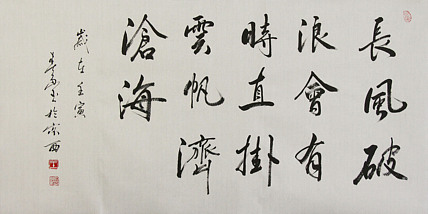 長風破
浪會有
時直掛
雲帆濟
滄海
歲在壬寅
書於京西